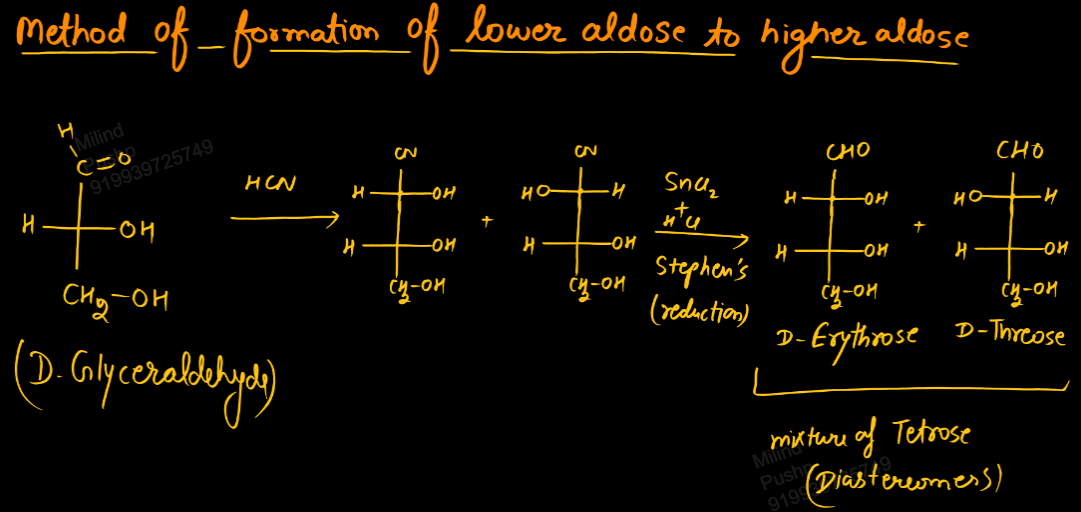 Method of formation of lower aldose to higher aldose
H
C=O
H OH
CH2-OH
(D-Glyceraldehyde)
HCN
CN
H OH
H OH
CH2-OH
+
CN
HO H
H OH
CH2-OH
SnCl2
H+Cl
Stephen's
(reduction)
CHO
H OH
H OH
CH2-OH
D-Erythrose
+
CHO
HO H
H OH
CH2-OH
D-Threose
mixture of Tetrose
(Diastereomers)
Milind
Pushp
919939725749
Milind
Pushp
919939725749